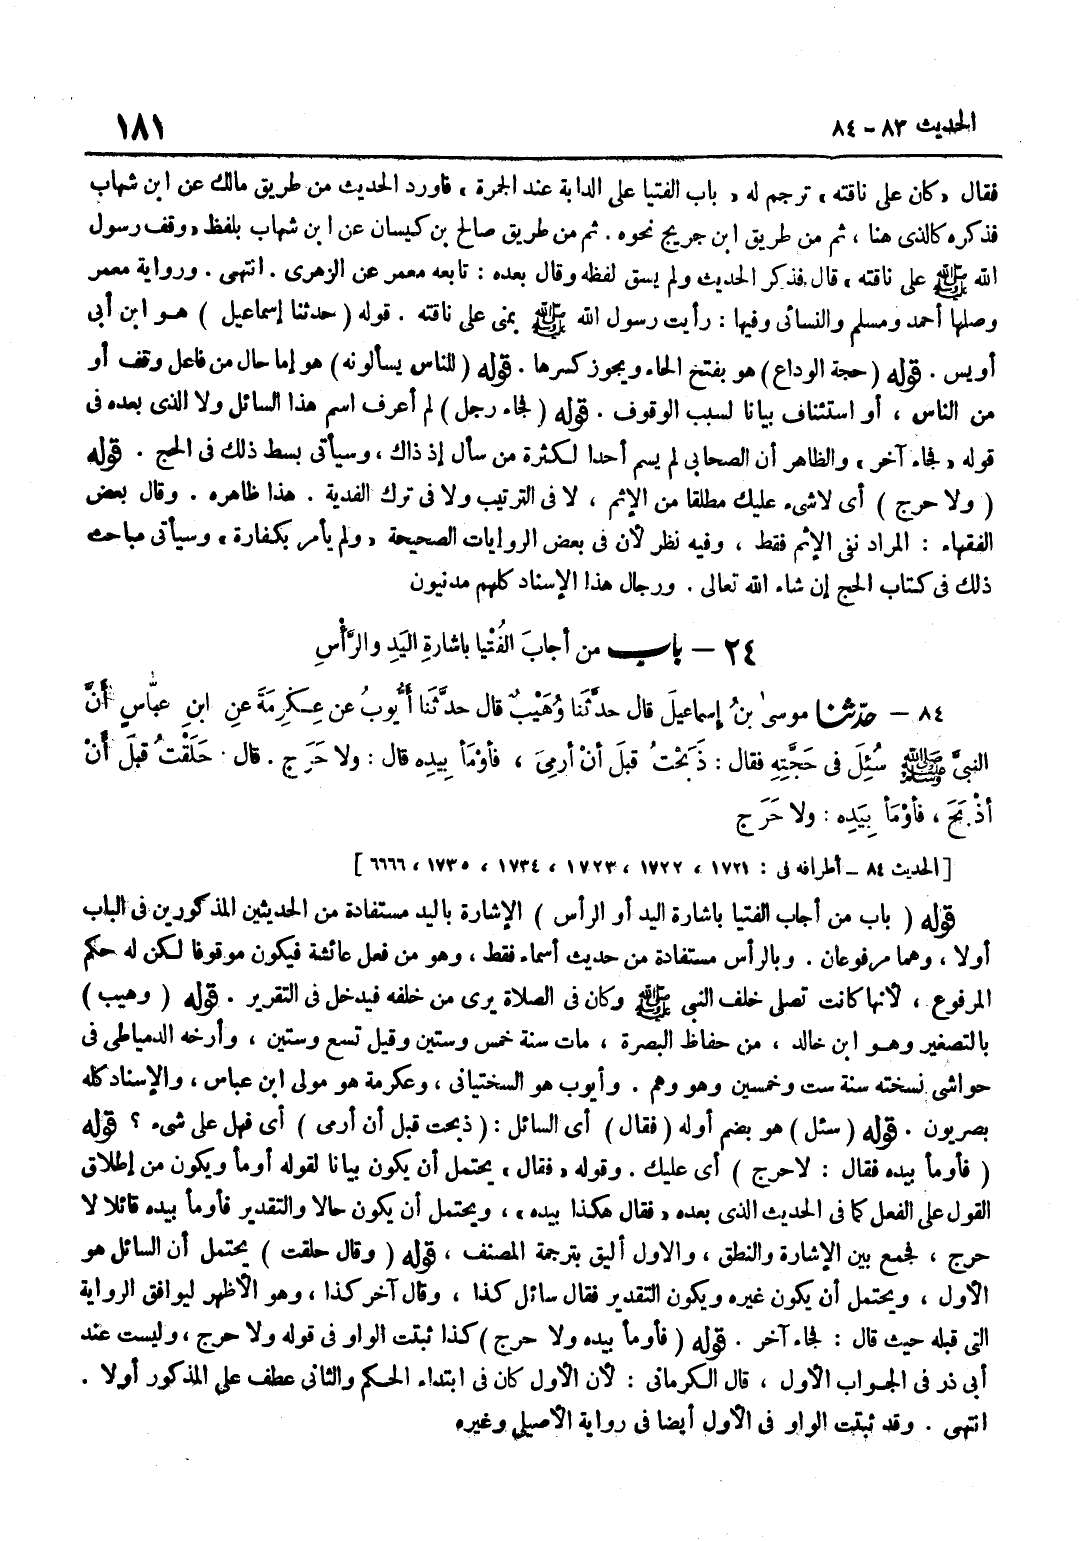 الحديث ٨٣ - ٨٤
١٨١
فقال «كان على ناقته» ترجم له «باب الفتيا على الدابة عند الجمرة» فاورد الحديث من طريق مالك عن ابن شهاب
فذكره كالذى هنا، ثم من طريق ابن جريج نحوه. ثم من طريق صالح بن كيسان عن ابن شهاب بلفظ «وقف رسول
الله ﷺ على ناقته» قال فذكر الحديث ولم يسق لفظه وقال بعده: تابعه معمر عن الزهرى. انتهى. ورواية معمر
وصلها أحمد ومسلم والنسائى وفيها: رأيت رسول الله ﷺ بمنى على ناقته. قوله (حدثنا إسماعيل) هو ابن أبى
أويس. قوله (حجة الوداع) هو بفتح الحاء ويجوز كسرها. قوله (للناس يسألونه) هو إما حال من فاعل وقف أو
من الناس، أو استئناف بيانا لسبب الوقوف. قوله (فجاء رجل) لم أعرف اسم هذا السائل ولا الذى بعده فى
قوله «فجاء آخر» والظاهر أن الصحابى لم يسم أحدا لكثرة من سأل إذ ذاك، وسيأتى بسط ذلك فى الحج. قوله
(ولا حرج) أى لاشىء عليك مطلقا من الإثم، لا فى الترتيب ولا فى ترك الفدية. هذا ظاهره. وقال بعض
الفقهاء: المراد نفى الإثم فقط، وفيه نظر لأن فى بعض الروايات الصحيحة «ولم يأمر بكفارة» وسيأتى مباحث
ذلك فى كتاب الحج إن شاء الله تعالى. ورجال هذا الإسناد كلهم مدنيون
٢٤ - باب من أجابَ الفُتْيا باشارةِ اليَدِ والرَّأْسِ
٨٤ - حدّثنا موسىٰ بنُ إسماعيلَ قال حدَّثَنا وُهَيْبٌ قال حدثَنا أيُّوبُ عن عِكْرِمَةَ عنِ ابنِ عبّاسٍ أنَّ
النبىَّ ﷺ سُئِلَ فى حَجَّتِهِ فقال: ذَبَحْتُ قبلَ أنْ أرمِىَ، فأوْمَأَ بِيدِه قال: ولا حَرَجَ. قال: حَلَقْتُ قبلَ أنْ
أذْبَحَ، فأوْمَأَ بِيَدِه: ولا حَرَج
[الحديث ٨٤ - أطرافه فى: ١٧٢١، ١٧٢٢، ١٧٢٣، ١٧٣٤، ١٧٣٥، ٦٦٦٦]
قوله (باب من أجاب الفتيا باشارة اليد أو الرأس) الإشارة باليد مستفادة من الحديثين المذكورين فى الباب
أولا، وهما مرفوعان. وبالرأس مستفادة من حديث أسماء فقط، وهو من فعل عائشة فيكون موقوفا لكن له حكم
المرفوع، لأنها كانت تصلى خلف النبى ﷺ وكان فى الصلاة يرى من خلفه فيدخل فى التقرير. قوله (وهيب)
بالتصغير وهو ابن خالد، من حفاظ البصرة، مات سنة خمس وستين وقيل تسع وستين، وأرخه الدمياطى فى
حواشى نسخته سنة ست وخمسين وهو وهم. وأيوب هو السختيانى، وعكرمة هو مولى ابن عباس، والإسناد كله
بصريون. قوله (سئل) هو بضم أوله (فقال) أى السائل: (ذبحت قبل أن أرمى) أى فهل على شىء؟ قوله
(فأومأ بيده فقال: لاحرج) أى عليك. وقوله «فقال» يحتمل أن يكون بيانا لقوله أومأ ويكون من إطلاق
القول على الفعل كما فى الحديث الذى بعده «فقال هكذا بيده»، ويحتمل أن يكون حالا والتقدير فأومأ بيده قائلا لا
حرج، فجمع بين الإشارة والنطق، والاول أليق بترجمة المصنف، قوله (وقال حلقت) يحتمل أن السائل هو
الأول، ويحتمل أن يكون غيره ويكون التقدير فقال سائل كذا، وقال آخر كذا، وهو الأظهر ليوافق الرواية
التى قبله حيث قال: فجاء آخر. قوله (فأومأ بيده ولا حرج) كذا ثبتت الواو فى قوله ولا حرج، وليست عند
أبى ذر فى الجواب الأول، قال الكرمانى: لأن الأول كان فى ابتداء الحكم والثانى عطف على المذكور أولا.
انتهى. وقد ثبتت الواو فى الأول أيضا فى رواية الأصيلى وغيره